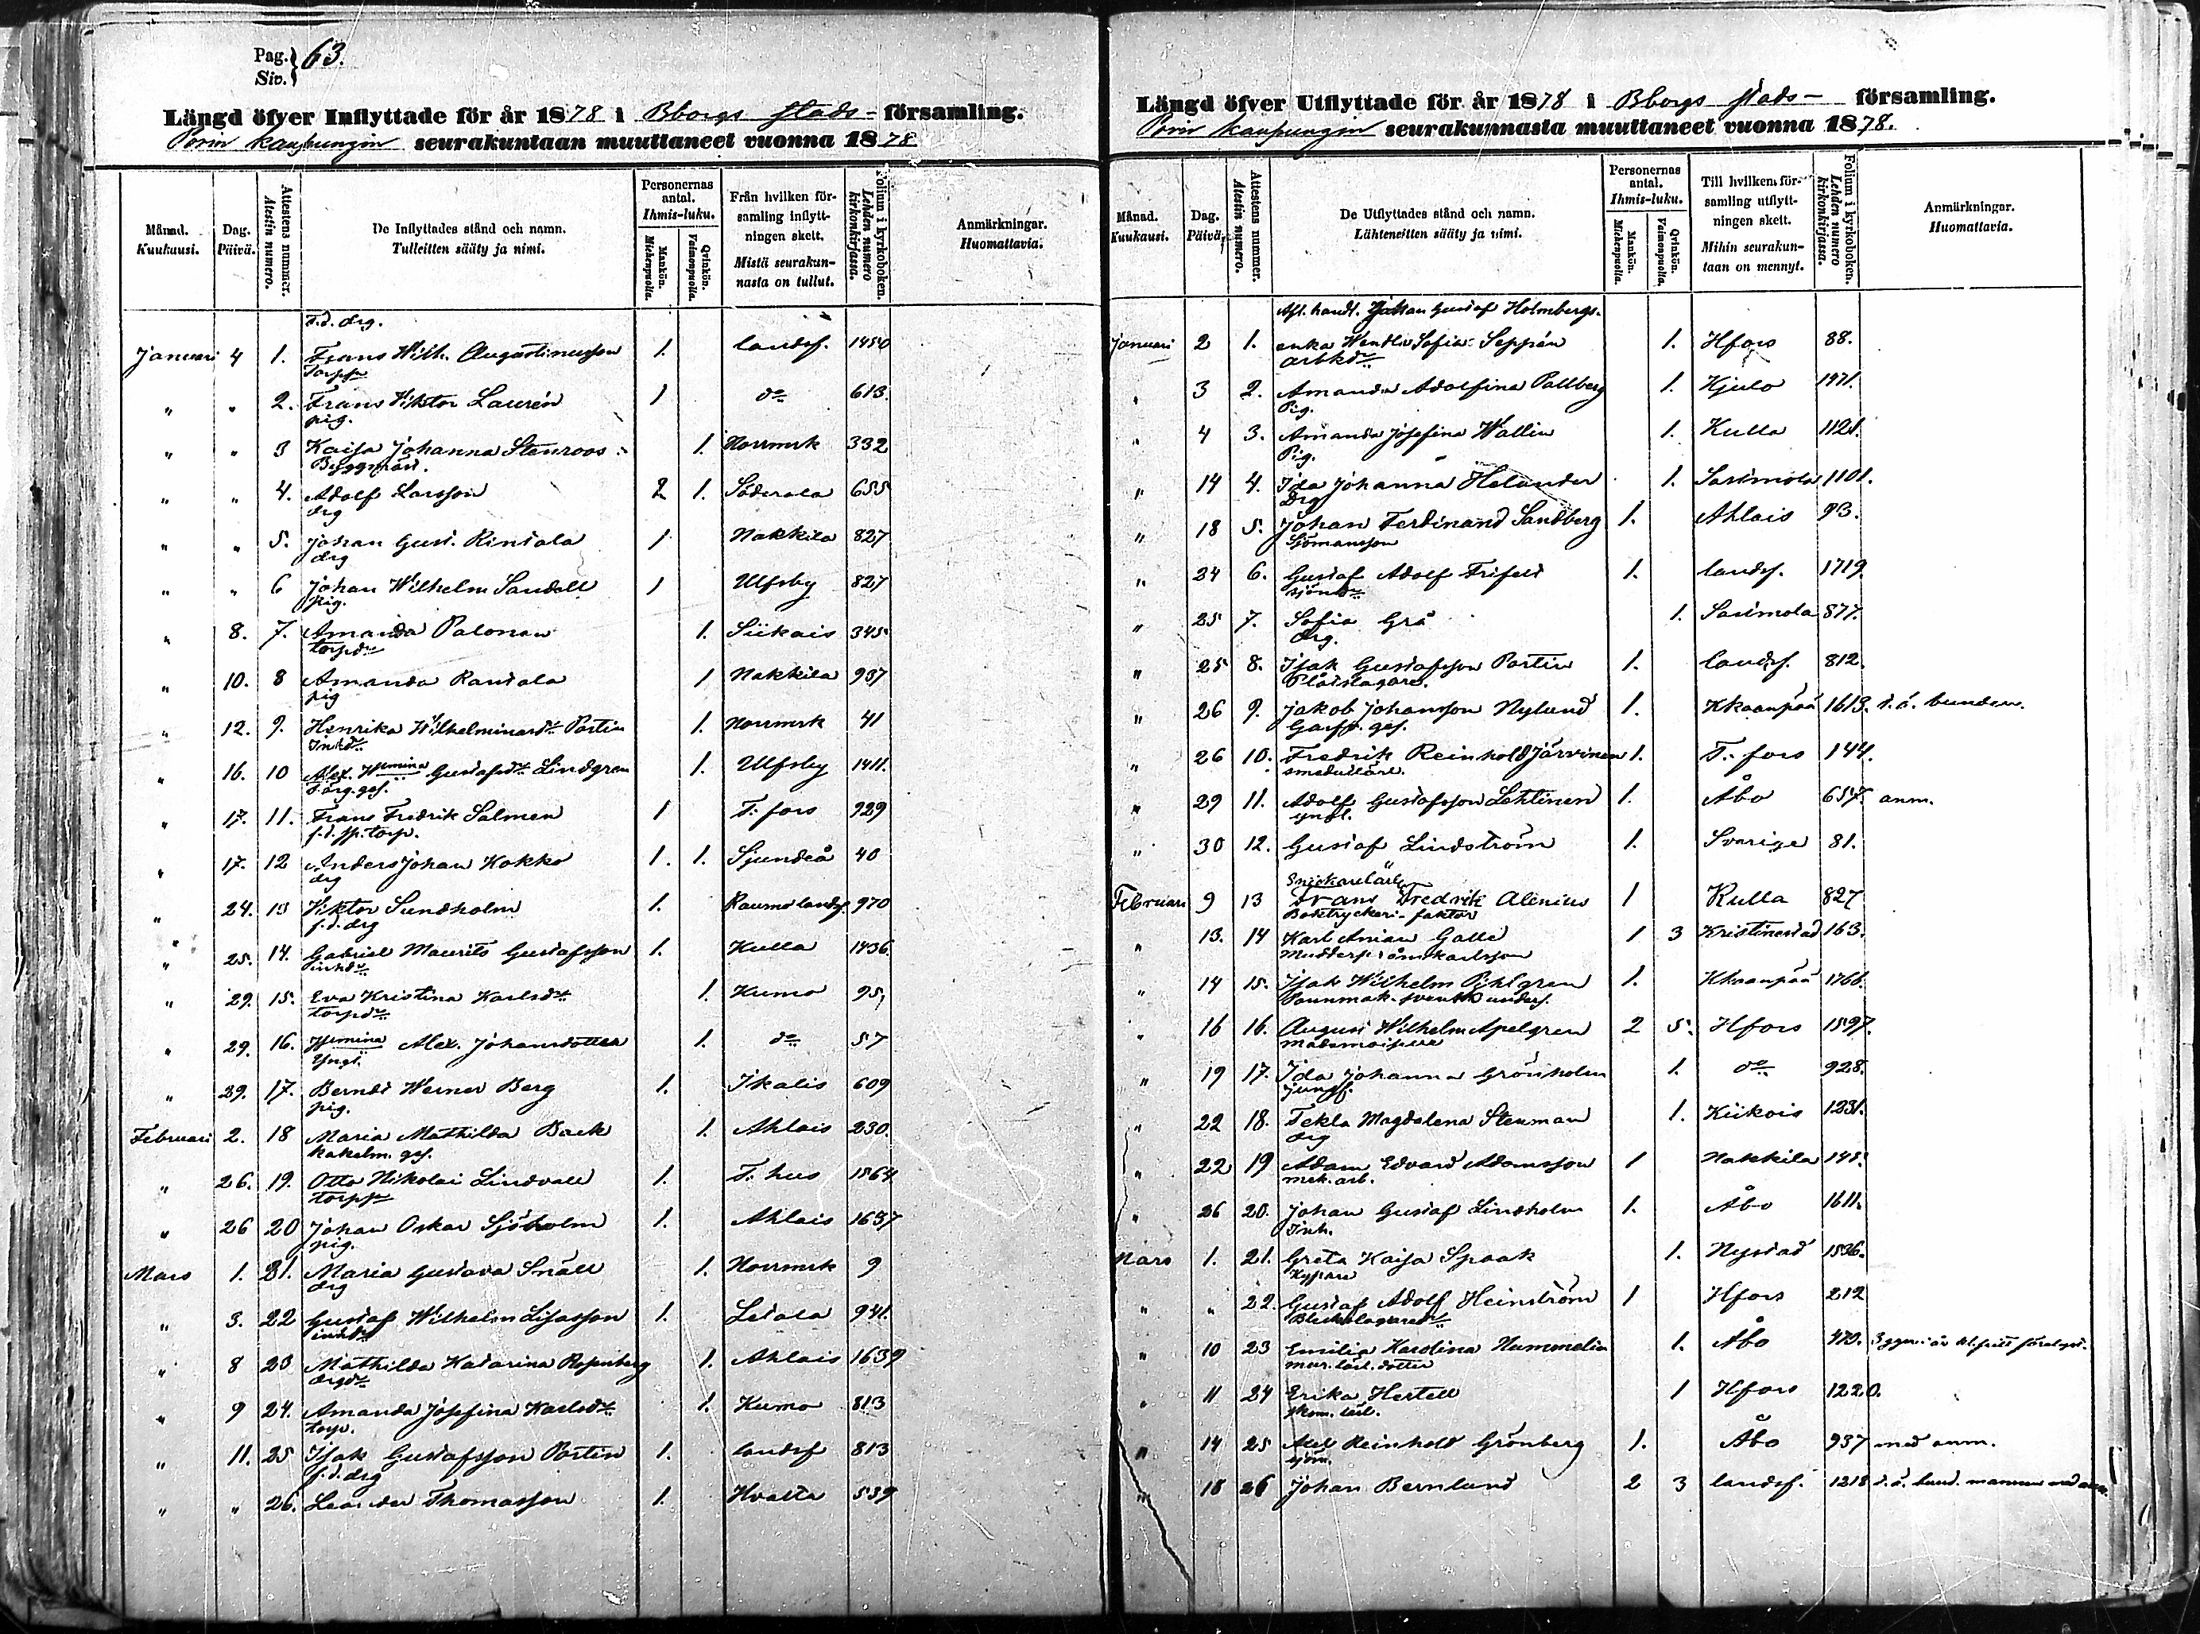 Pag. 63.
Siv.
Längd öfver Inflyttade för år 1878 i Bborgs stads-församling.
Porin kaupungin seurakuntaan muuttaneet vuonna 1878
Månad. Kuukausi.
Dag. Päivä.
Attestens nummer. Atestin numero.
De Inflyttades stånd och namn. Tulleitten sääty ja nimi.
Personernas antal. Ihmis-luku.
Mankön. Miehenpuolta.
Qvinkön. Vaimonpuolta.
Från hvilken församling inflyttningen skett. Mistä seurakunnasta on tullut.
Folium i kyrkoboken. Lehden numero kirkonkirjassa.
Anmärkningar. Huomattavia.
F.d. drg.
Januari 4 1. Frans Wilh. Augustinusson 1. landsf. 1450
Torpson
" " 2. Frans Viktor Laurén 1 do 613.
pig.
" " 3 Kaisa Johanna Stenroos 1. Norrmrk 332
Byggmäst.
" " 4. Adolf Larsson 2 1. Söderala 655
drg
" " 5. Johan Gust. Rintala 1 Nakkila 827
drg
" " 6 Johan Wilhelm Sandell 1 Ulfsby 827
pig.
" 8. 7. Amanda Palonen 1. Siikais 345
torpdr
" 10. 8 Amanda Rantala 1 Nakkila 937
pig
" 12. 9. Henrika Wilhelminasdr Portin 1. Norrmrk 41
Inhdr
" 16. 10 Alex. Wmina Gustafsdr Lindgren 1. Ulfsby 1411.
Färg. ges.
" 17. 11. Frans Fredrik Salmen 1 T:fors 929
f.d. sp. torp.
" 17. 12 Anders Johan Kokko 1. 1. Sjundeå 40
drg
" 24. 13 Viktor Sundholm 1. Raumo landsf. 970
f.d. drg
" 25. 14. Gabriel Maurits Gustafsson 1. Kulla 1436
inhdr
" 29. 15. Eva Kristina Karlsdr 1. Kumo 95,
torpdr
" 29. 16. Wmina Alex. Johansdotter 1. do 57
Yngl.
" 29. 17. Berndt Werner Berg 1. Ikalis 609
pig.
Februari 2. 18 Maria Mathilda Back 1. Ahlais 230.
kakelm. ges.
" 26. 19. Otto Nikolai Lindvall 1. T:hus 1564
torpson
" 26 20 Johan Oskar Sjöholm 1. Ahlais 1637
pig.
Mars 1. 21. Maria Gustava Snäll 1. Norrmrk 9
drg
" 3. 22 Gustaf Wilhelm Lisasson 1. Letala 941.
inhdr
" 8 23 Mathilda Katarina Rosenberg 1. Ahlais 1639
drgdr
" 9 24. Amanda Josefina Karlsdr 1. Kumo 813
torp.
" 11. 25 Isak Gustafsson Portin 1. landsf 813
f.d. drg
" " 26. Leander Thomasson 1. Hvatta 539
Längd öfver Utflyttade för år 1878 i Bborgs stads- församling.
Porin kaupungin seurakunnasta muuttaneet vuonna 1878.
Månad. Kuukausi.
Dag. Päivä.
Attestens nummer. Atestin numero.
De Utflyttades stånd och namn. Lähteneitten sääty ja nimi.
Personernas antal. Ihmis-luku.
Mankön. Miehenpuolta.
Qvinkön. Vaimonpuolta.
Till hvilken församling utflyttningen skett. Mihin seurakuntaan on mennyt.
Folium i kyrkoboken. Lehden numero kirkonkirjassa.
Anmärkningar. Huomattavia.
Afl. handl. Johan Gustaf Holmbergs
Januari 2 1. enka Hendla Sofia Seppän 1. Hfors 88.
arbkdr
" 3 2. Amanda Adolfina Pallberg 1. Kjulo 1971.
Pig.
" 4 3. Amanda Josefina Wallin 1. Kulla 1121.
Pig.
" 14 4. Ida Johanna Helander 1. Sastmola 1101.
Drg
" 18 5. Johan Ferdinand Sandberg 1. Ahlais 93.
Sjömansson
" 24 6. Gustaf Adolf Frifelt 1. landsf. 1719.
sjömdr
" 25 7. Sofia Grå 1. Sastmola 877.
drg.
" 25 8. Isak Gustafsson Portin 1. landsf. 812.
Plåtslagare.
" 26 9. Jakob Johansson Nylund 1. Kkaanpää 1613. t. ä. bunden.
Garfv. ges.
" 26 10. Fredrik Reinhold Järvinen 1. T:fors 144.
smedslärl.
" 29 11. Adolf Gustafsson Lehtinen 1. Åbo 657. anm.
yngl.
" 30 12. Gustaf Lindström 1. Sverige 81.
Snickarelärl.
Februari 9 13 Frans Fredrik Alenius 1 Kulla 827
Boktryckeri-faktor
" 13. 14 Karl Anian Galle 1 3 Kristinestad 163.
" 14 15. Isak Wilhelm Pihlgren 1. Kkaanpää 1766.
" 16 16. August Wilhelm Apelgren 2 5. Hfors 1597.
Mademoiselle
" 19 17. Ida Johanna Grönholm 1. do 928.
jungf.
" 22 18. Tekla Magdalena Stenman 1. Kiikois 1231.
drg
" 22 19 Adam Edvard Adamsson 1 Nakkila 148.
mek. arb.
" 26 20. Johan Gustaf Lindholm 1. Åbo 1611.
Inh.
Mars 1. 21. Greta Kaisa Spaak 1. Nystad 1536.
Kypare
" " 22. Gustaf Adolf Heinström 1 Hfors 212
Bleckslagaredr
" 10 23 Emilia Karolina Hummelin 1. Åbo 470.
mur. lärl. dotter
" 11 24 Erika Hertell 1 Hfors 1220.
skom. lärl.
" 14 25 Axel Reinhold Grönberg 1. Åbo 937 med anm.
sjöm.
" 18 26 Johan Bernlund 2 3 landsf. 1218